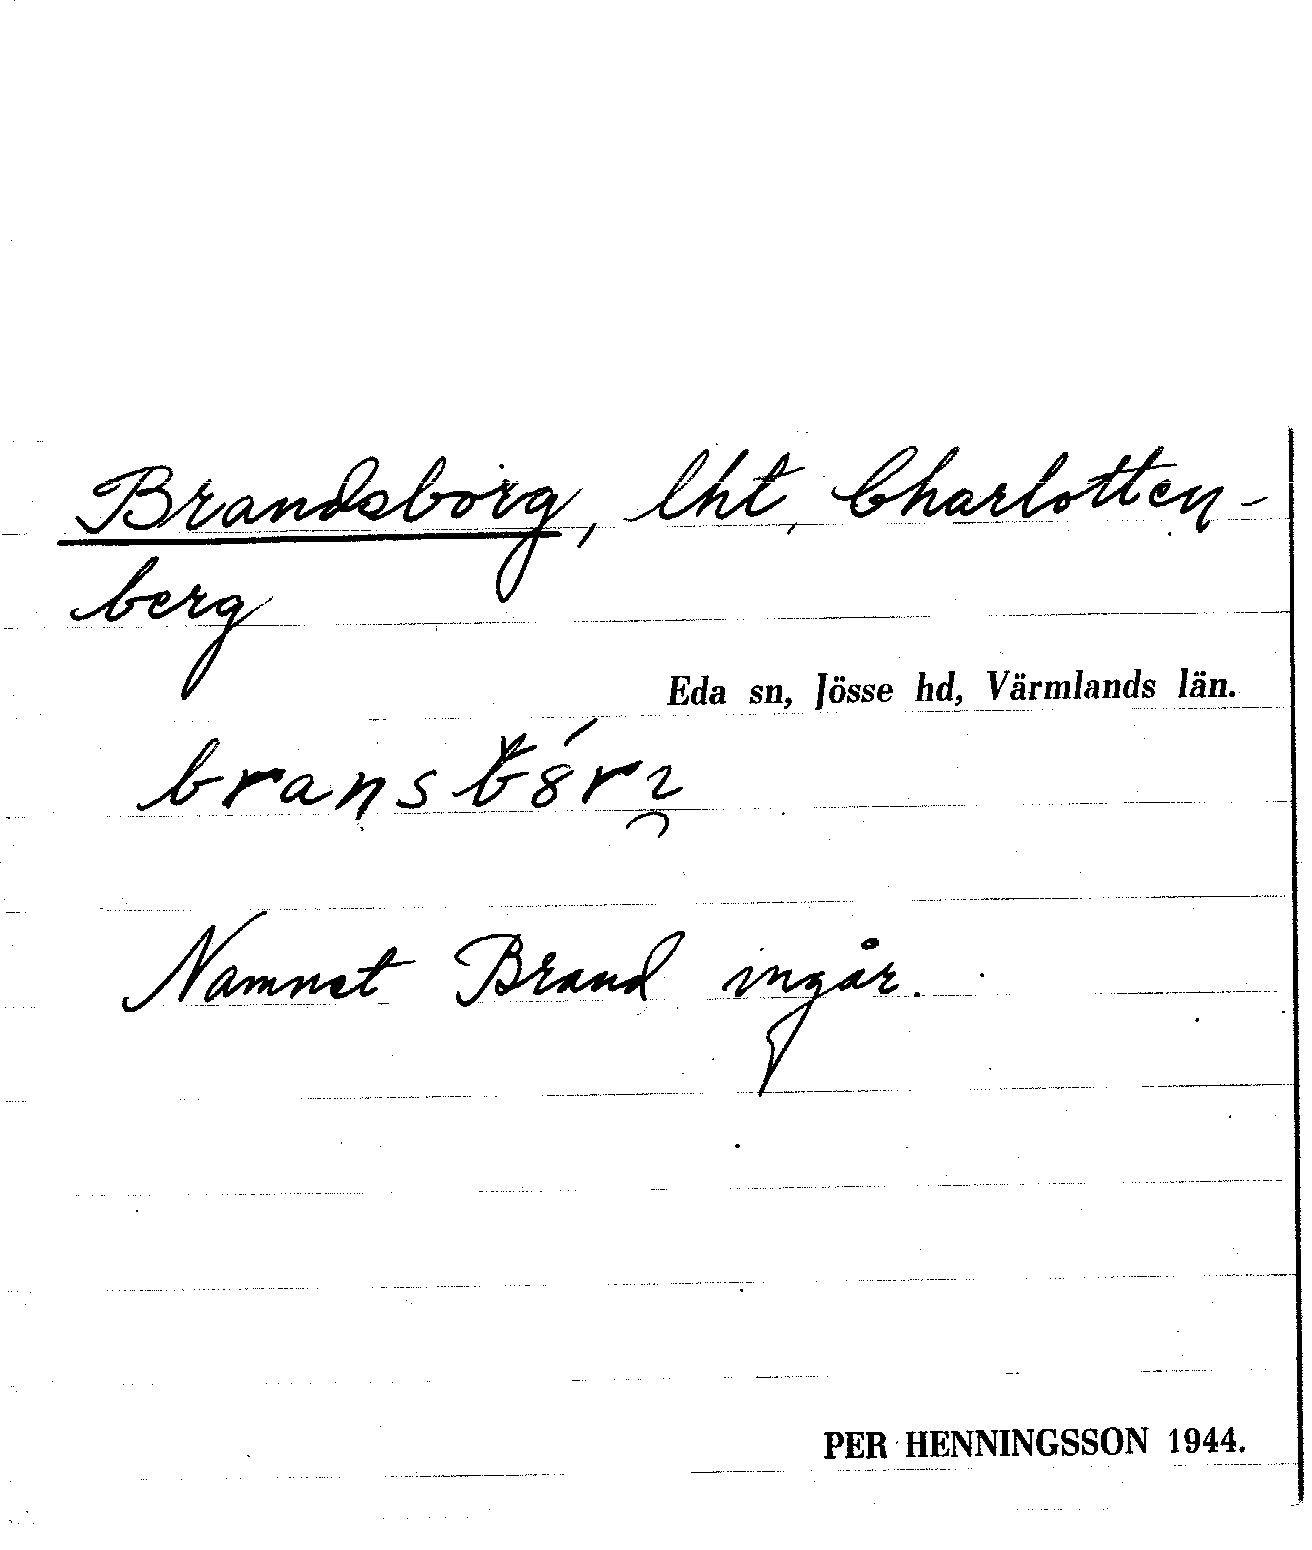 Brandsborg, lht, Charlotten-
berg
Eda sn, Jösse hd, Värmlands län.
Namnet Brand ingår.
PER HENNINGSSON 1944.